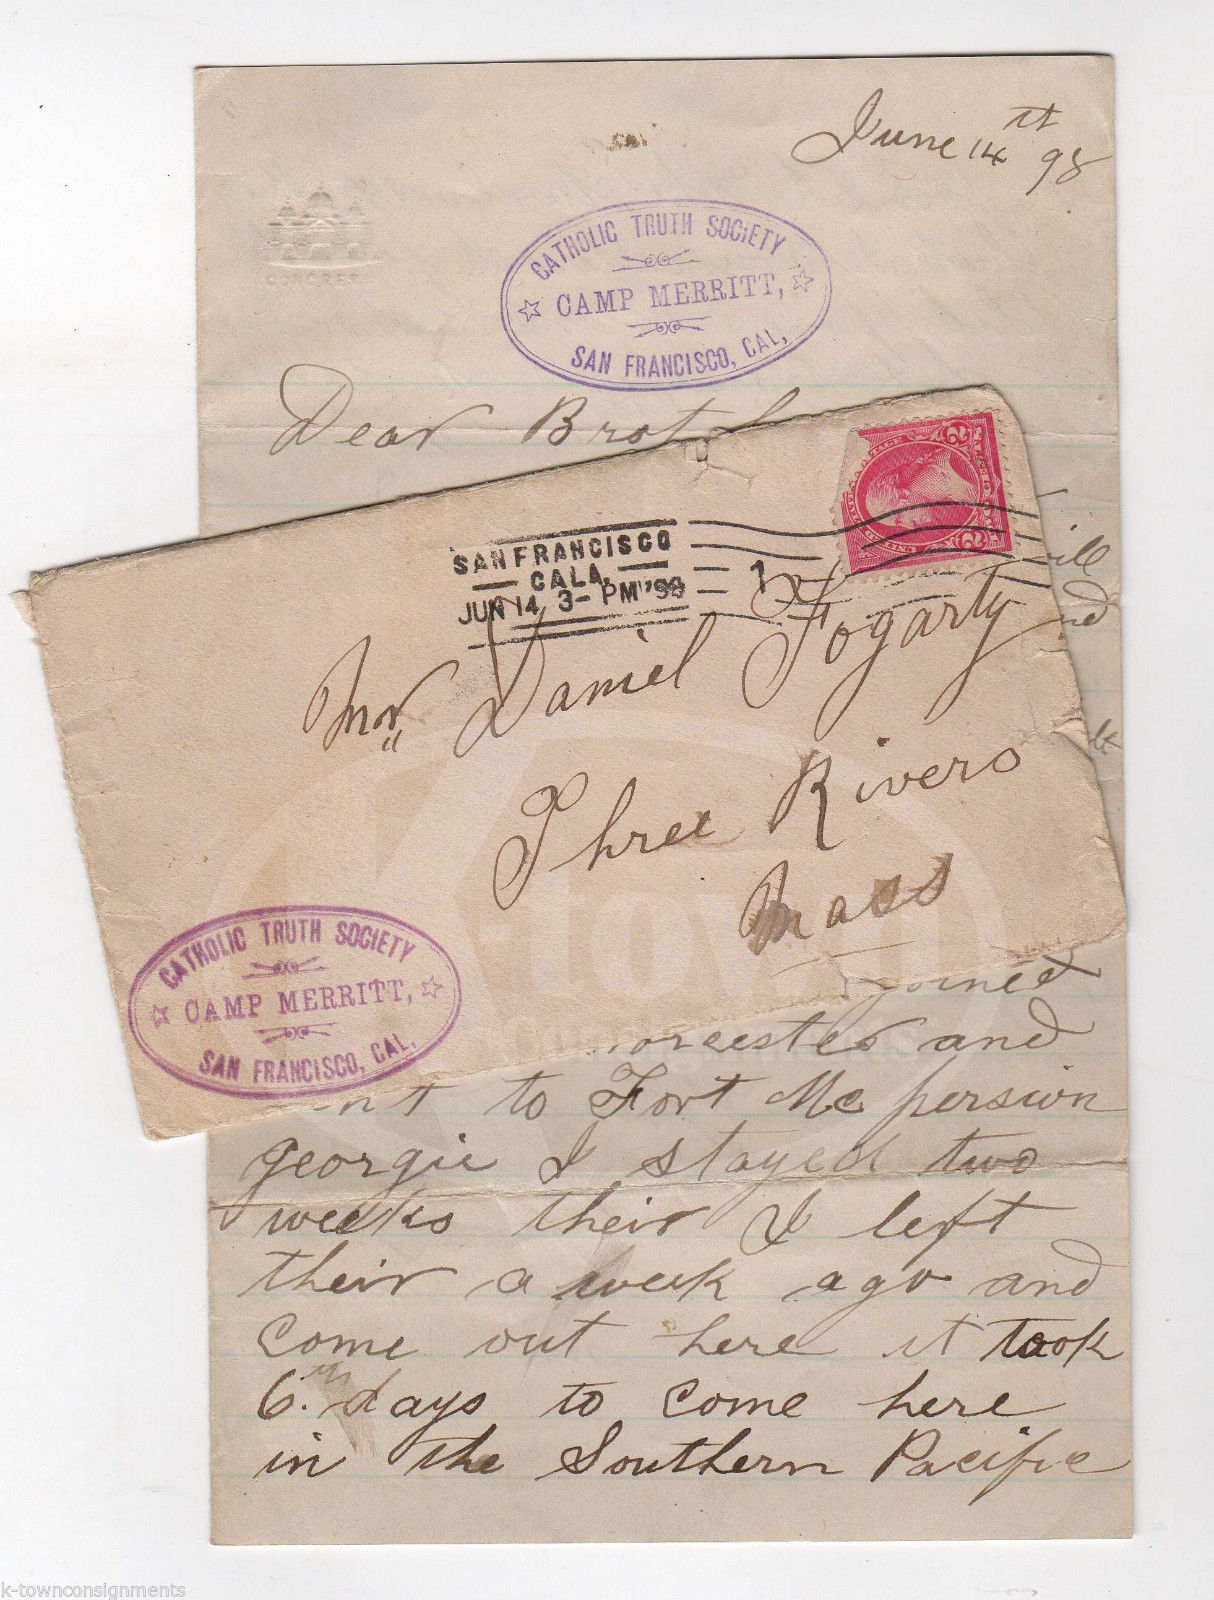 June 14th 98
CONGRESS
CATHOLIC TRUTH SOCIETY
CAMP MERRITT,
SAN FRANCISCO, CAL,
Dear Brot
ill
nd
SAN FRANCISCO
CALA.
JUN 14 3-PM '98
1
2
2
Mr Daniel Fogarty
Three Rivers
Mass
CATHOLIC TRUTH SOCIETY
CAMP MERRITT,
SAN FRANCISCO, CAL,
joined
orcester and
nt to Fort Mc persion
georgie I stayed two
weeks their I left
their a week ago and
come out here it took
6 days to come here
in the Southern Pacific
k-townconsignments